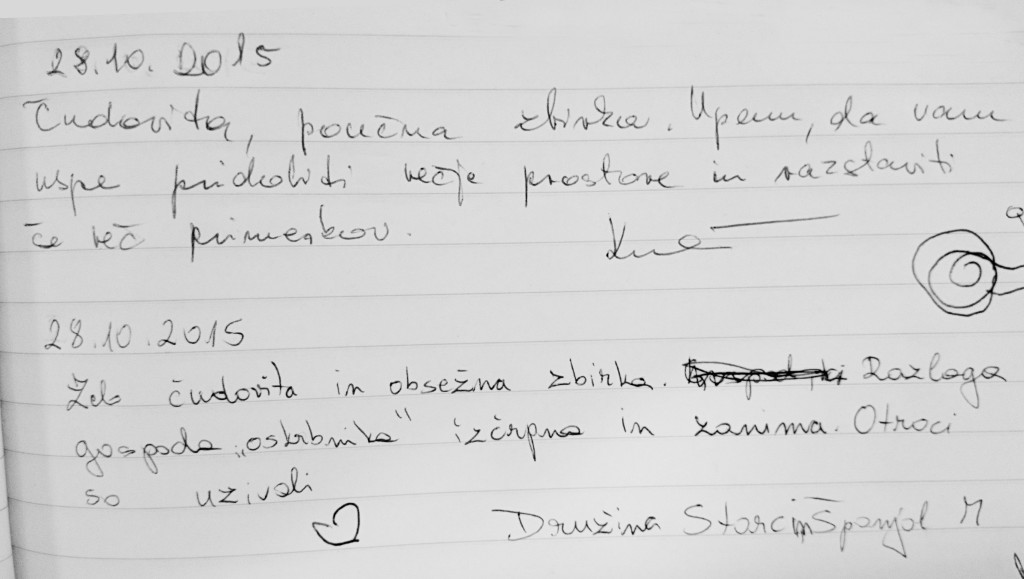 28.10.2015
Čudovita, poučna zbirka. Upam, da vam
uspe pridobiti večje prostore in razstaviti
še več primerkov.
28.10.2015
Zelo čudovita in obsežna zbirka. Razlaga
gospoda "oskrbnika" izčrpna in zanimiva. Otroci
so uzivali
Družina Starcin Španjol M